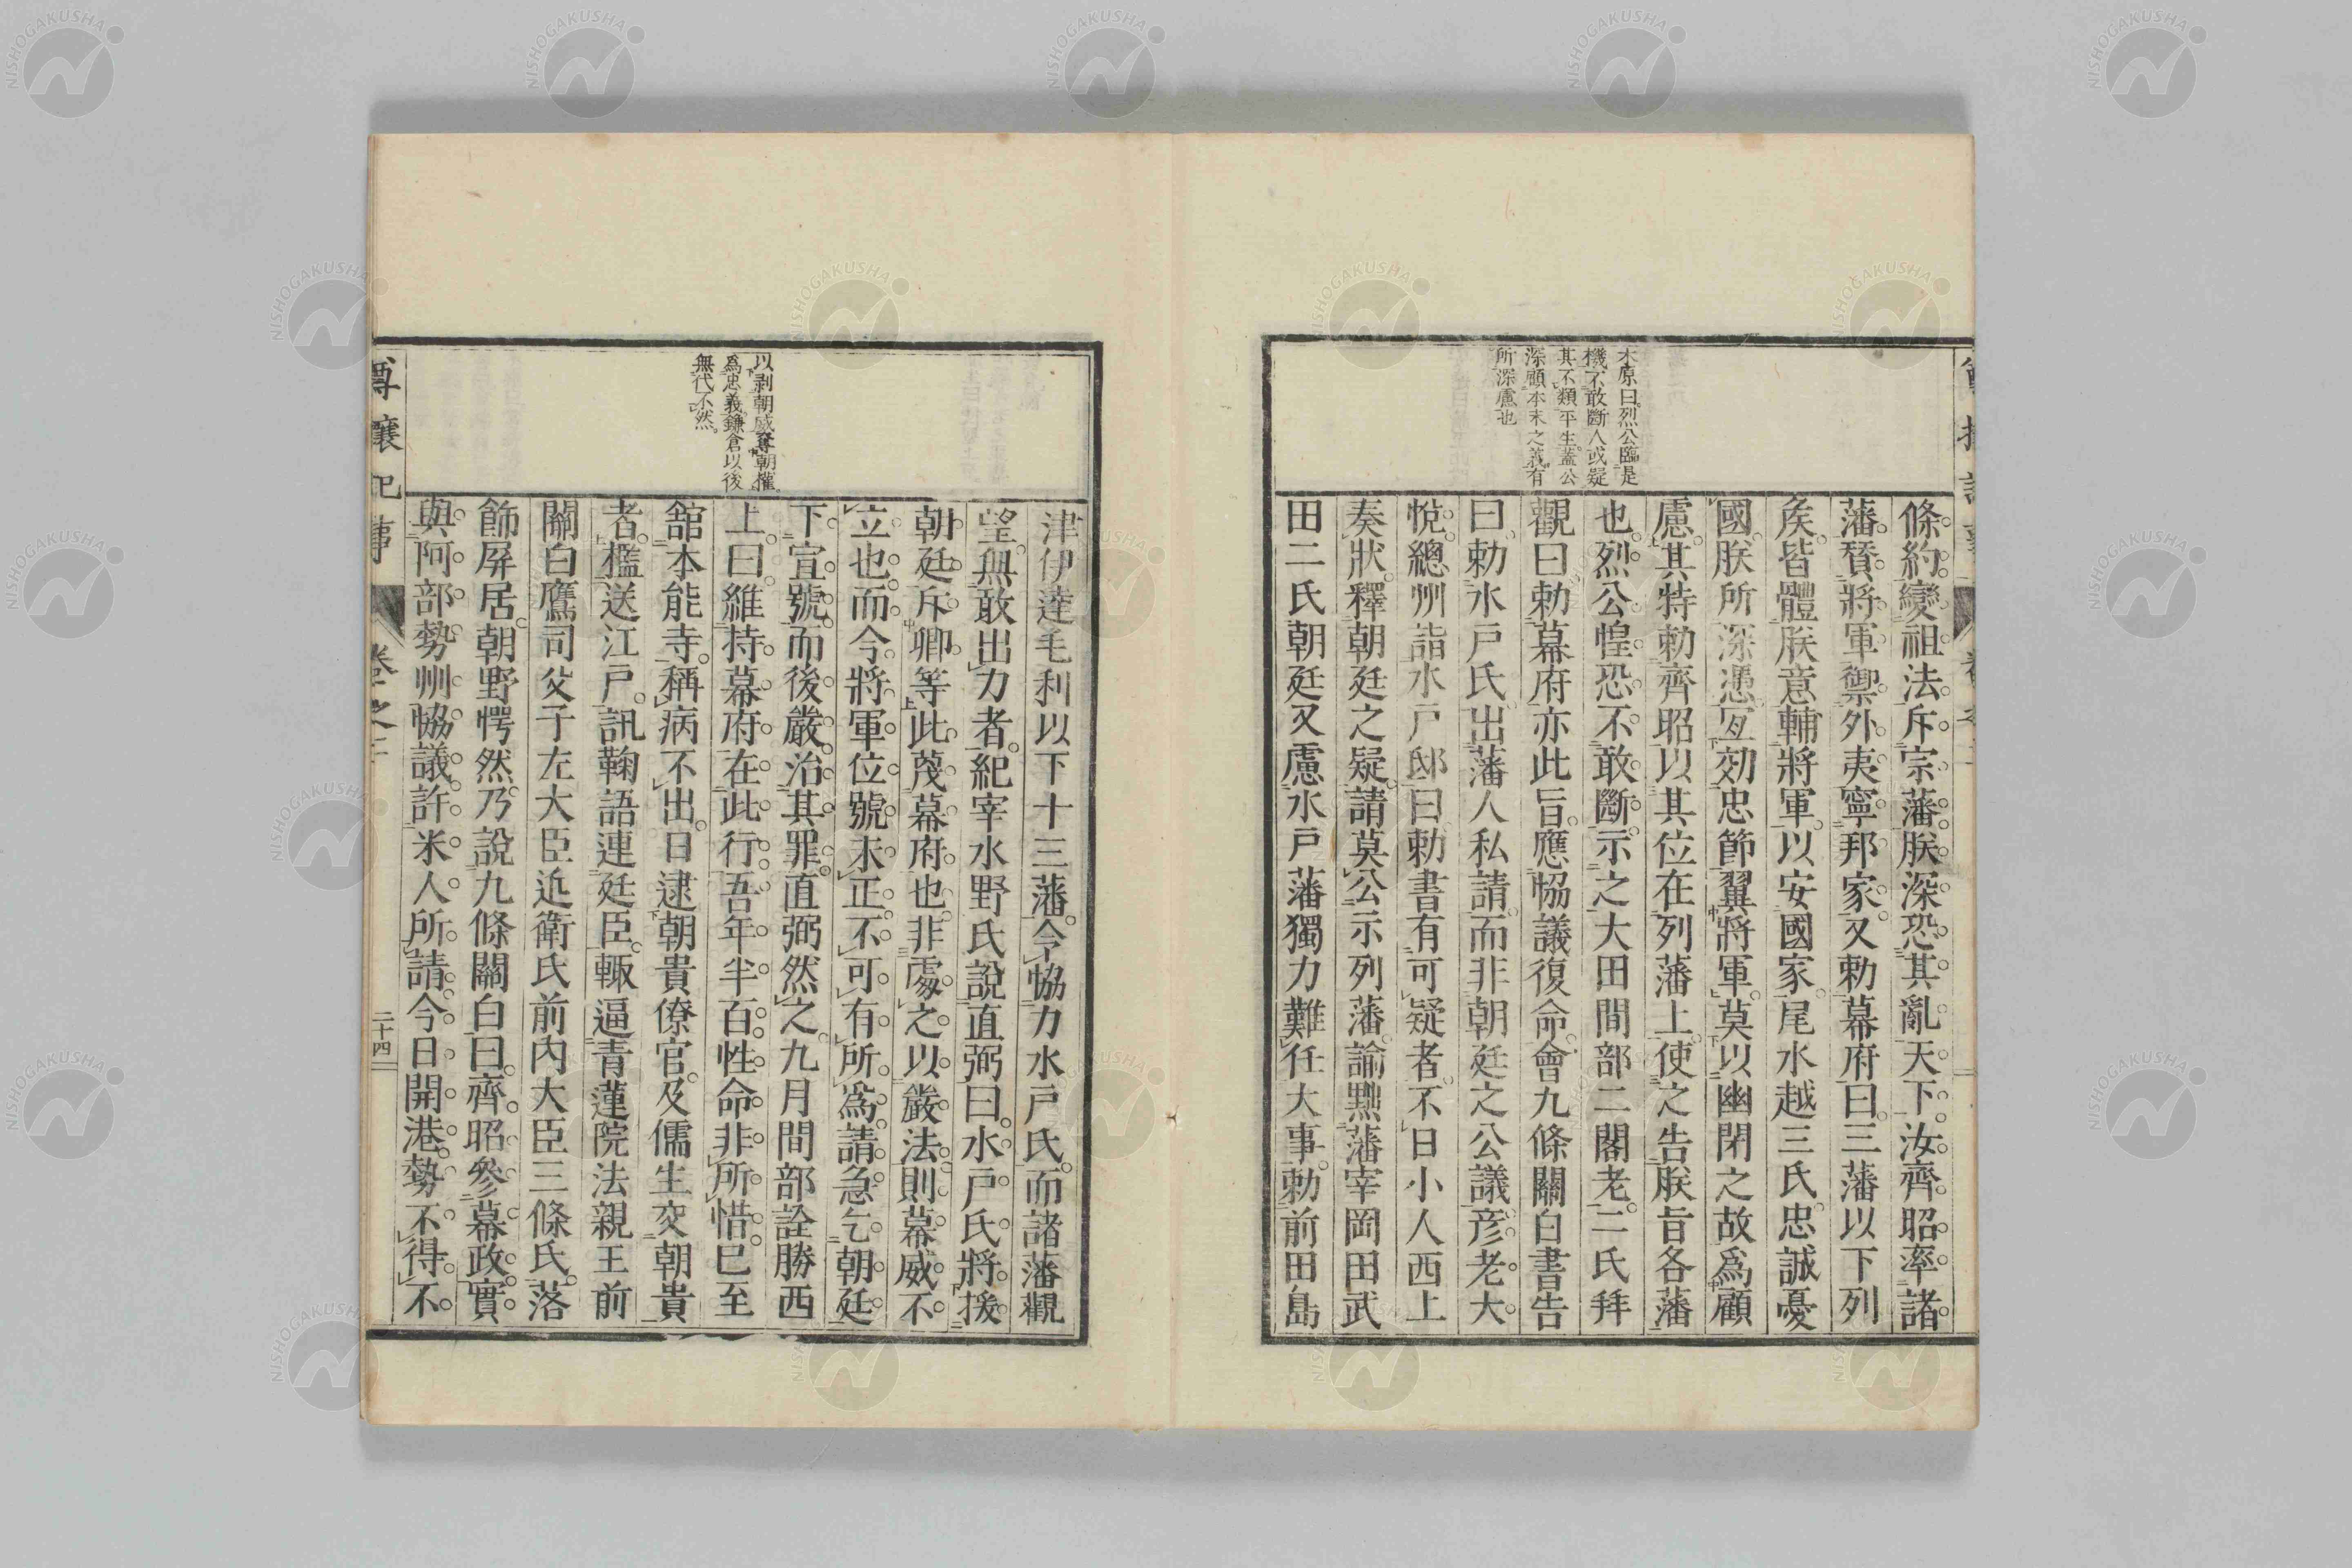 木原曰。烈公臨是
機。不敢斷。人或疑
其不類平生。蓋公
深顧本末之義。有
所深慮也
條約。變祖法。斥宗藩。朕深恐其亂天下。汝齊昭率諸
藩。贊將軍。禦外夷。寧邦家。又勅幕府曰。三藩以下列
矦。皆體朕意。輔將軍。以安國家。尾水越三氏。忠誠憂
國。朕所深憑。互効忠節。翼將軍。莫以幽閉之故爲顧
慮。其特勅齊昭。以其位在列藩上。使之告朕旨各藩
也。烈公惶恐。不敢斷。示之大田間部二閣老。二氏拜
觀曰。勅幕府亦此旨。應恊議復命。會九條關白書告
曰。勅水戶氏。出藩人私請。而非朝廷之公議。彦老大
悅。總州詣水戶邸曰。勅書有可疑者。不日小人西上
奏狀。釋朝廷之疑。請莫公示列藩。諭黑藩宰岡田武
田二氏。朝廷又慮水戶藩獨力難任大事。勅前田島
以剥朝威奪朝權。
爲忠義。鎌倉以後
無代不然。
津伊達毛利以下十三藩。令恊力水戶氏。而諸藩觀
望。無敢出力者。紀宰水野氏說直弼曰。水戶氏將援
朝廷。斥卿等。此蔑幕府也。非處之以嚴法。則幕威不
立也。而今將軍位號未正。不可有所爲。請急乞朝廷
下宣號。而後嚴治其罪。直弼然之。九月間部詮勝西
上。曰。維持幕府。在此行。吾年半百。性命非所惜。已至
舘本能寺。稱病不出。日逮朝貴僚官。及儒生交朝貴
者。檻送江戶。訊鞠語連廷臣。輙逼青蓮院法親王前
關白鷹司父子左大臣近衛氏前内大臣三條氏。落
飾屏居。朝野愕然。乃說九條關白曰。齊昭參幕政。實
與阿部勢州恊議。許米人所請。今日開港。勢不得不
尊攘記事
卷之二
二十四